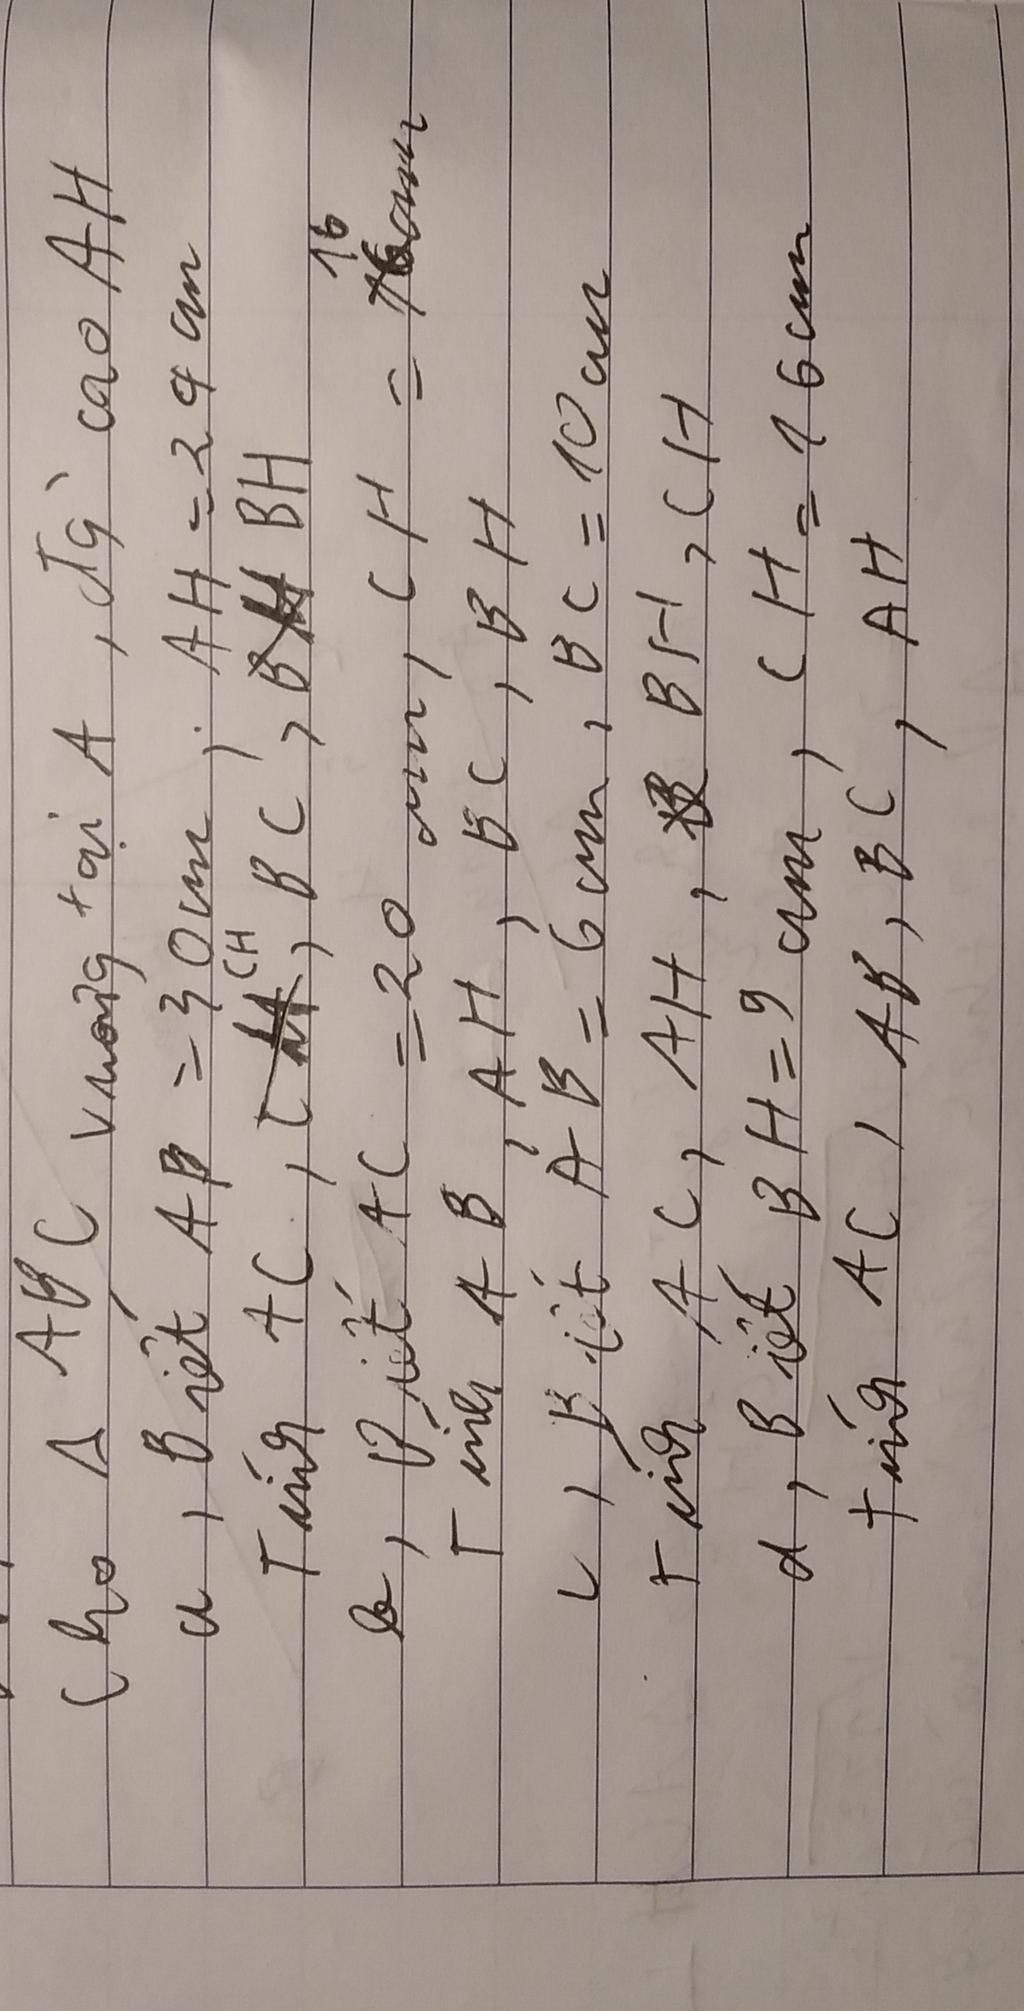 Cho Δ ABC vuông tại A, đg cao AH
a, Biết AB = 30cm, AH = 24 cm
Tính AC, CH, BC, BH
b, Biết AC = 20 cm, CH = 16 cm
Tính AB, AH, BC, BH
c, Biết AB = 6 cm, BC = 10 cm
Tính AC, AH, BH, CH
d, Biết BH = 9 cm, CH = 16 cm
Tính AC, AB, BC, AH